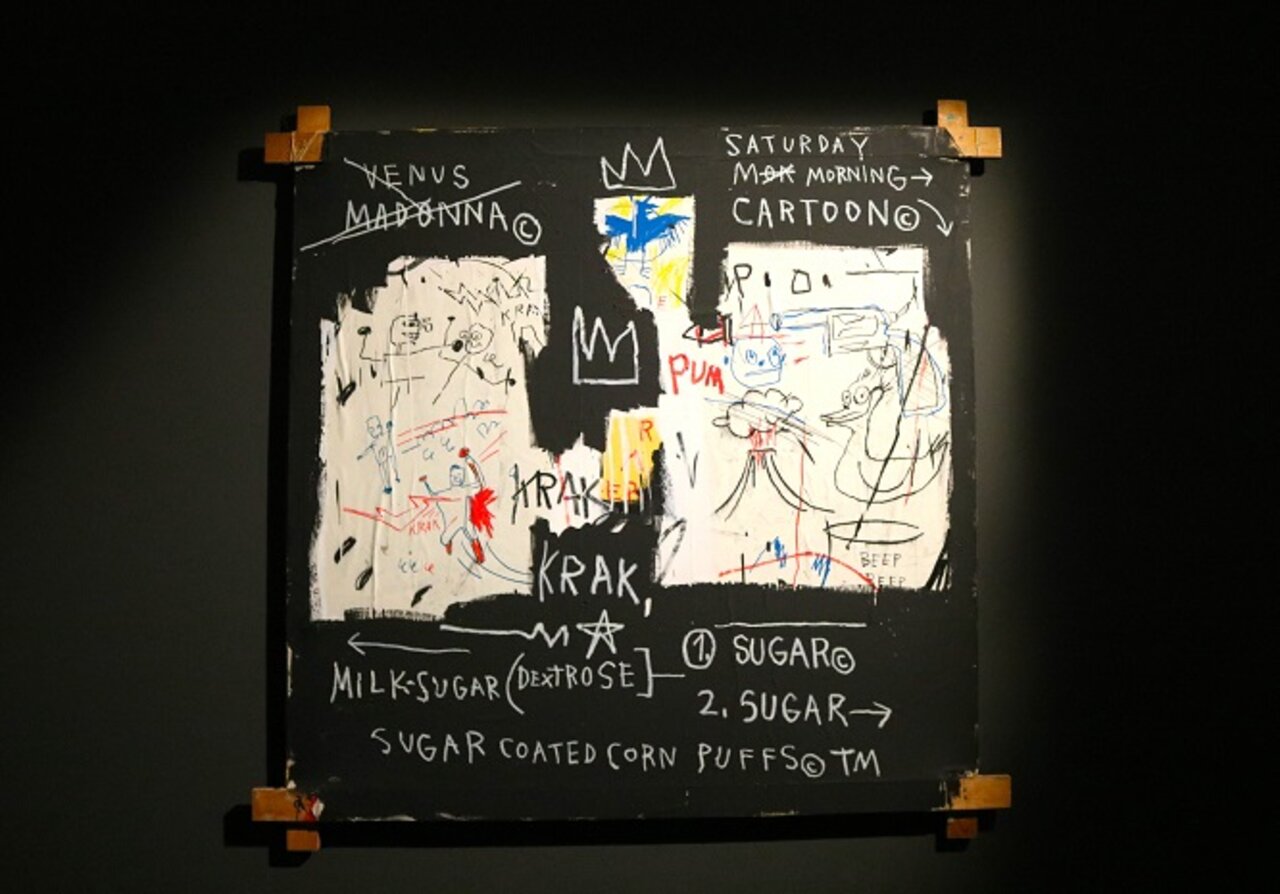 VENUS
MADONNA©
SATURDAY
MOR MORNING→
CARTOON©
P.O.
KRA
E
PUM
R
KRAK
KRAK
BEEP
BEEP
KRAK,
MILK-SUGAR (DEXTROSE]
1. SUGAR©
2. SUGAR→
SUGAR COATED CORN PUFFS© TM